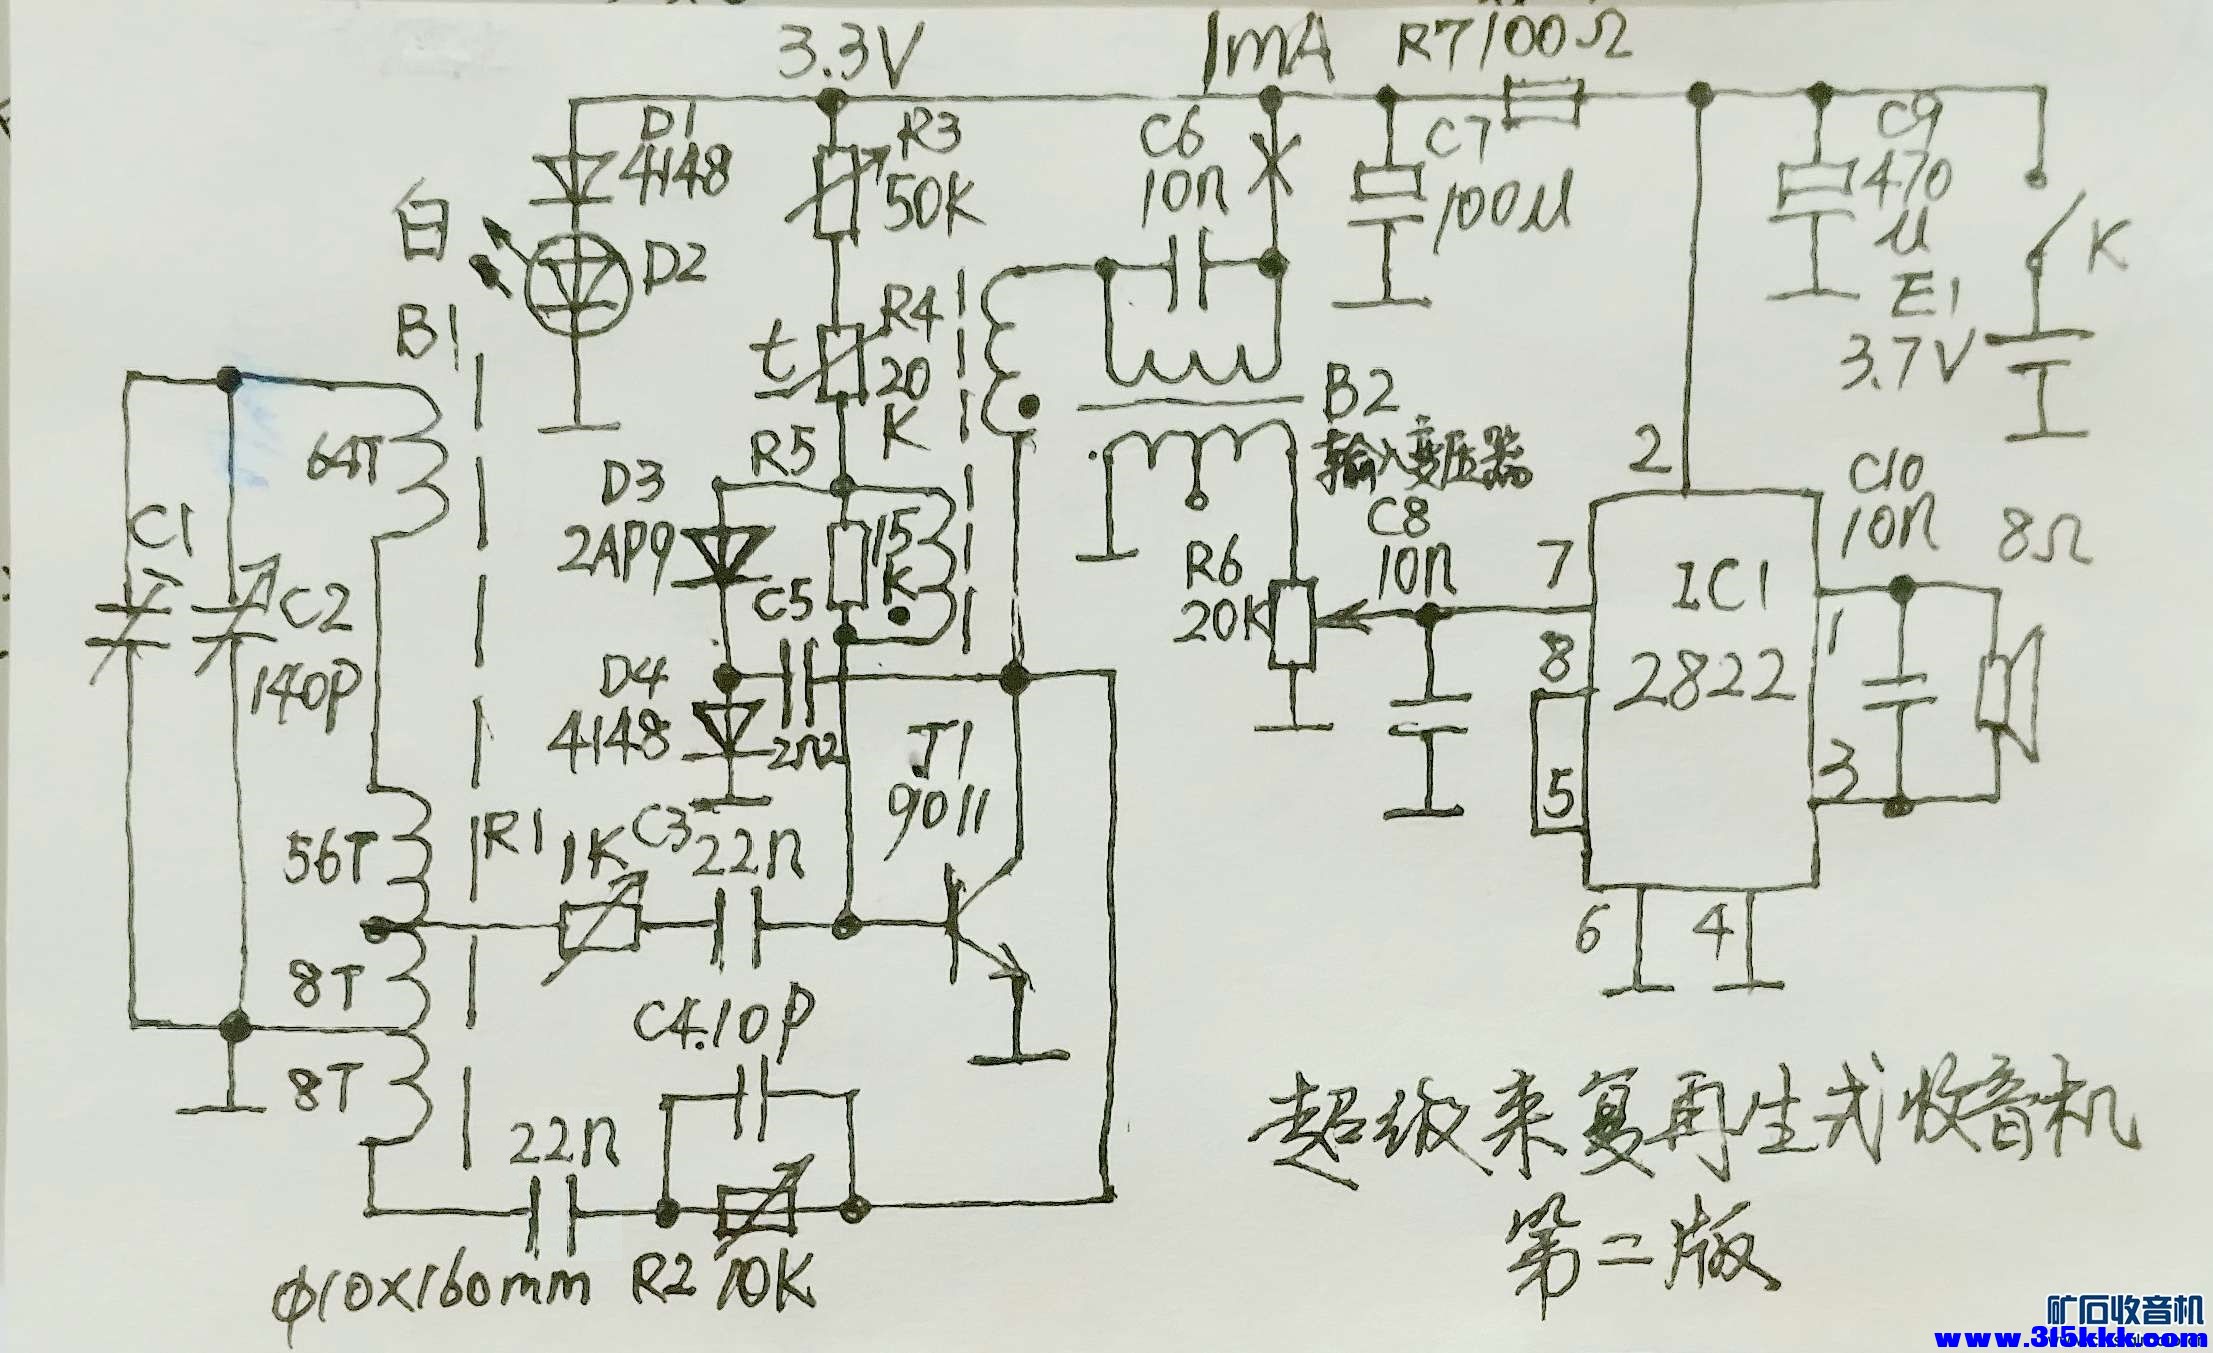 3.3V
1mA
R7 100Ω
D1
4148
R3
50K
C6
10n
C7
100μ
C9
470
μ
白
D2
K
B1
E1
3.7V
R4
20
K
t
B2
输入变压器
64T
R5
D3
2AP9
15
K
2
C8
10n
C10
10n
8Ω
C1
C2
140P
C5
R6
20K
7
IC1
2822
1
8
D4
4148
2n2
J1
9011
5
3
56T
R1
1K
C3
22n
6
4
8T
C4.10P
8T
22n
超级来复再生式收音机
第二版
φ10×160mm
R2 10K
矿石收音机
www.315kkk.com